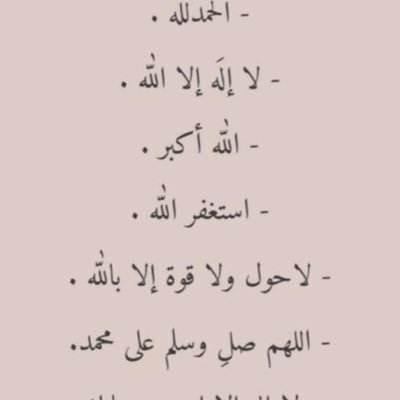 - الحمدلله .
- لا إلَه إلا الله .
- الله أكبر .
- استغفر الله .
- لاحول ولا قوة إلا بالله .
- اللهم صلِ وسلم على محمد.